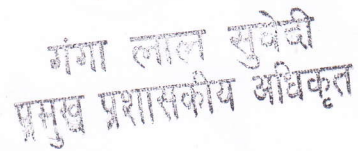 गंगा लाल सुवेदी
प्रमुख प्रशासकीय अधिकृत